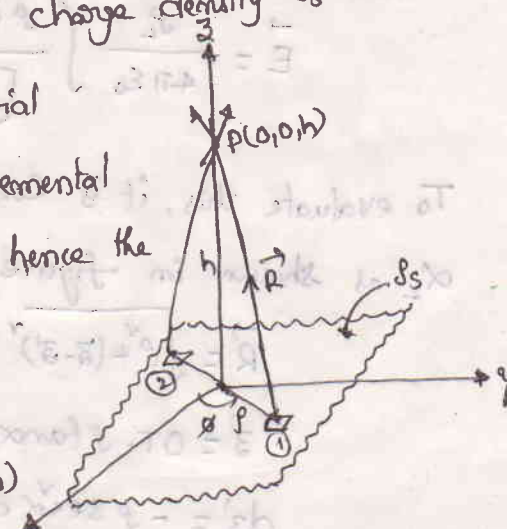 charge density is
z
ial
P(0,0,h)
emental
hence the
h
R
ρs
y
②
φ ρ
①
)